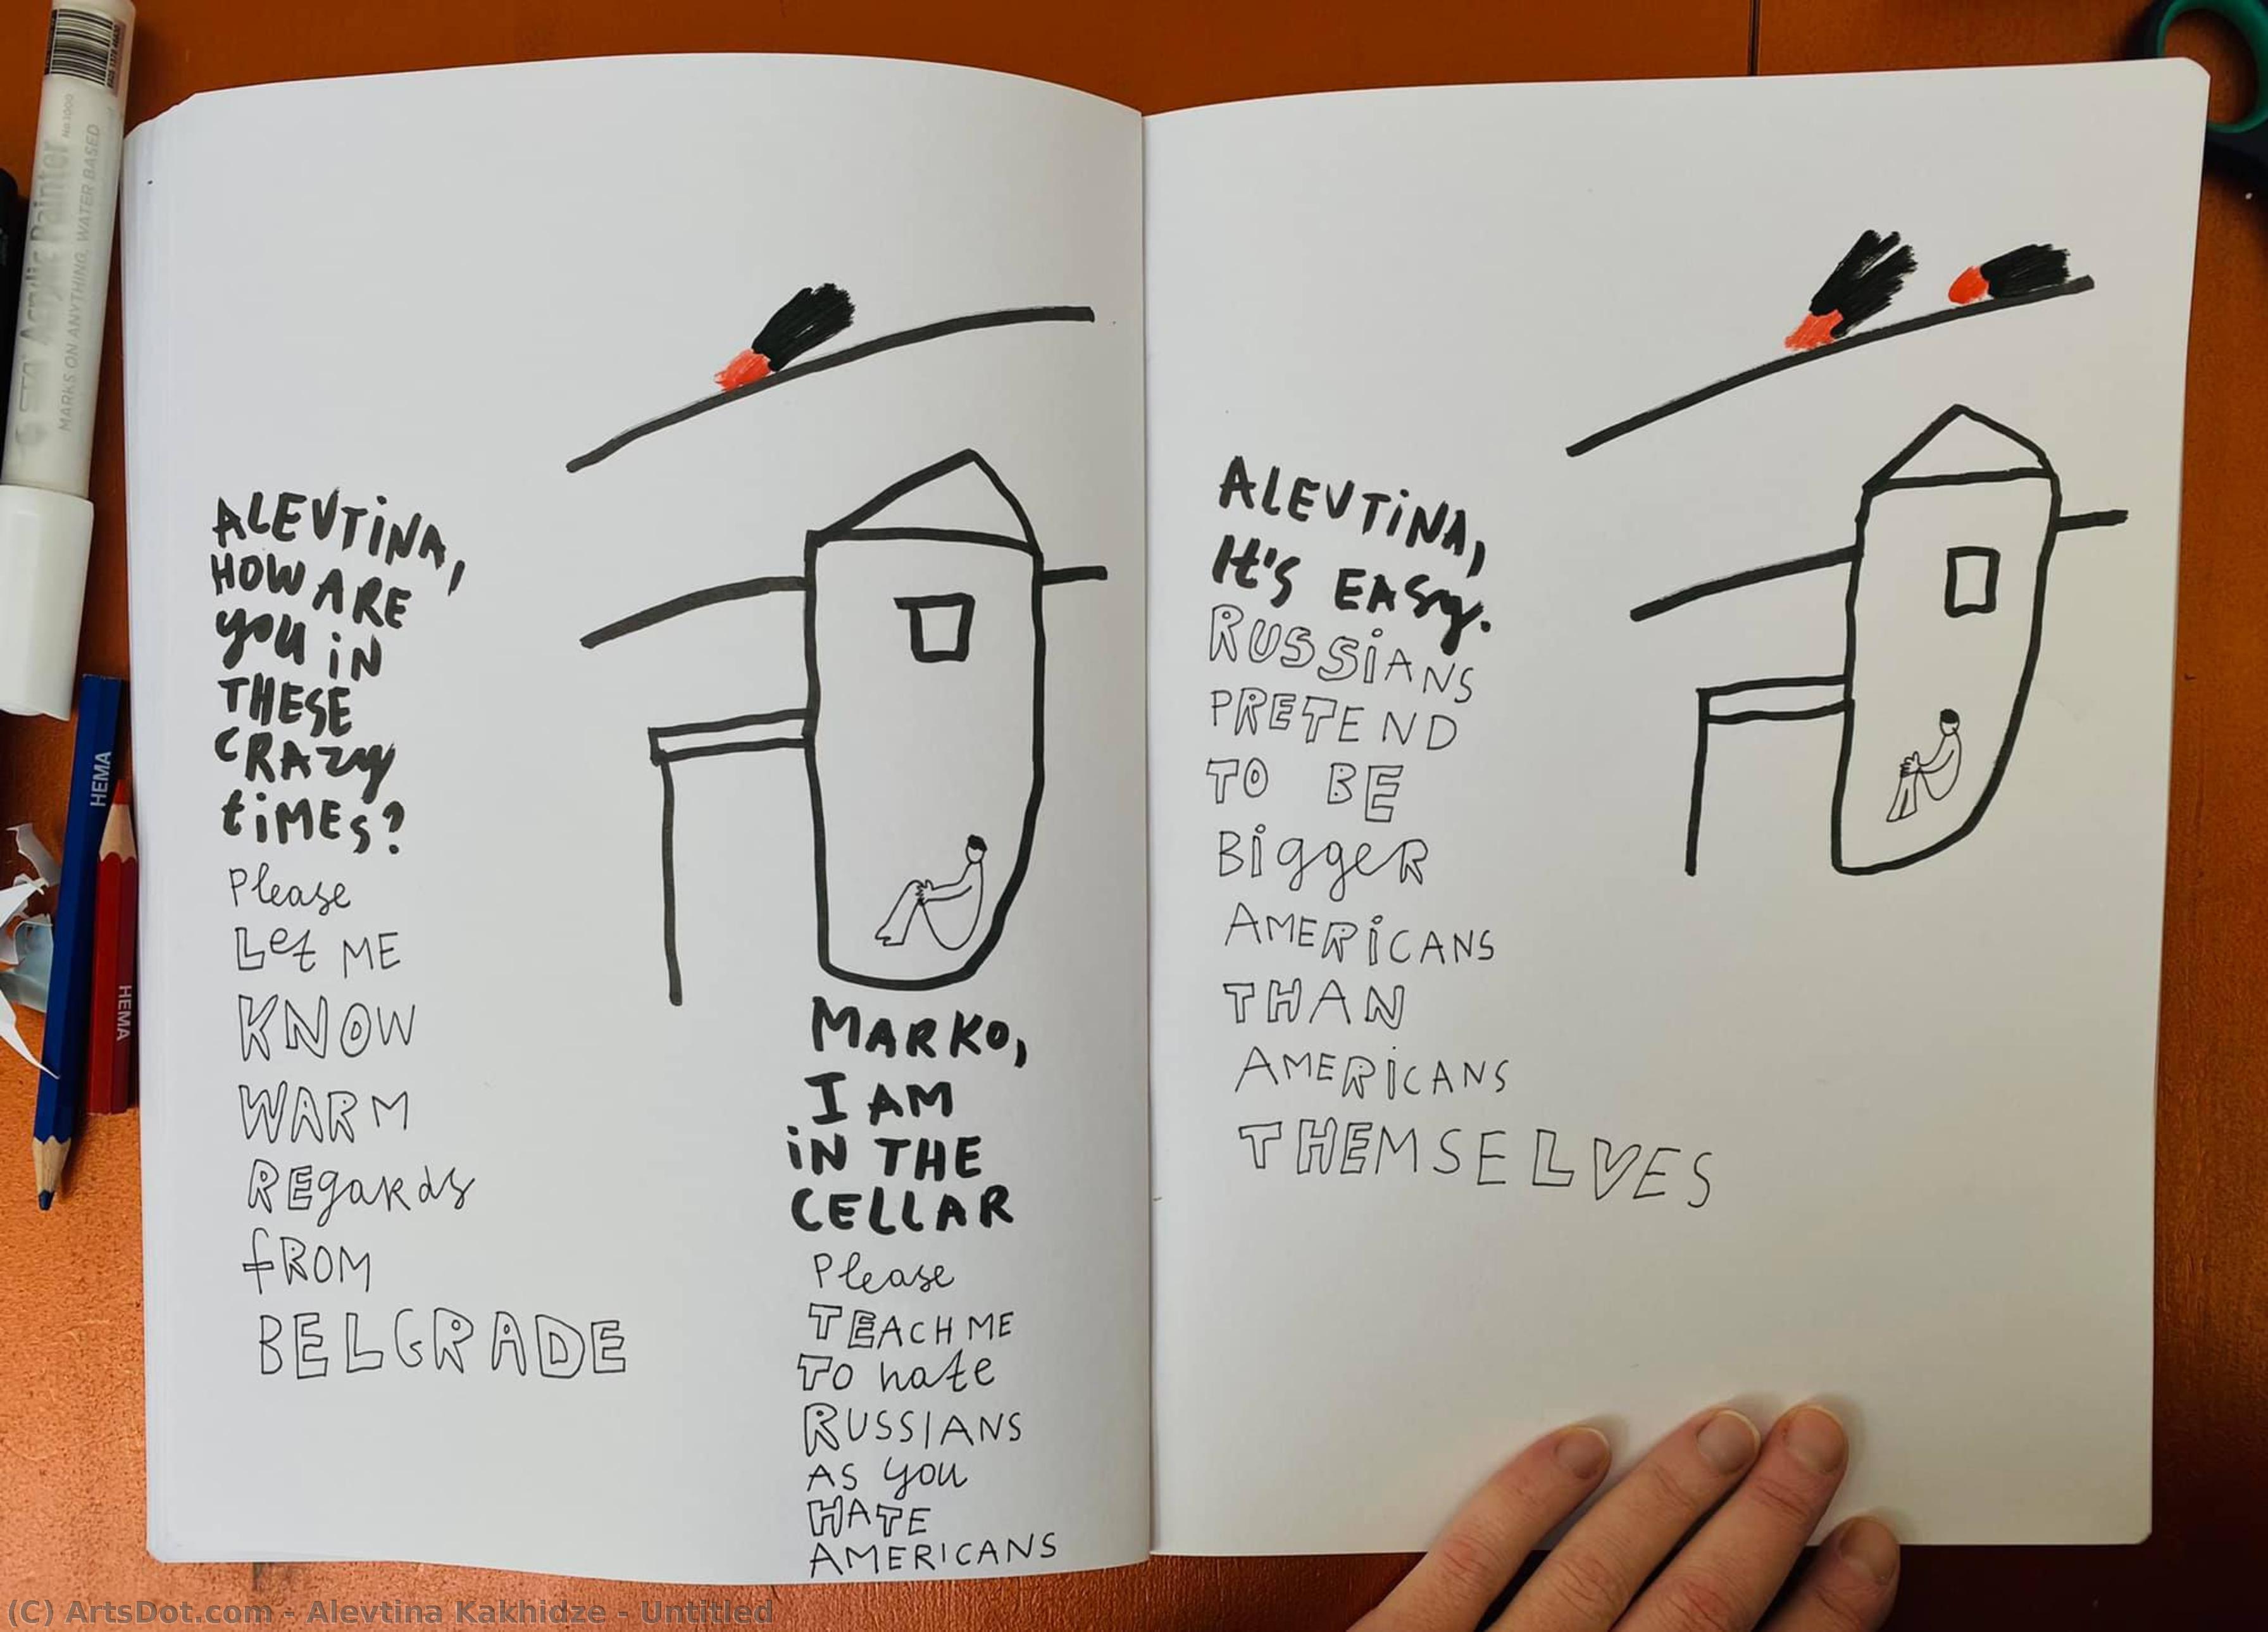 ALEVTINA,
HOW ARE
you iN
THESE
CRAZY
tiMEs?
Please
Let ME
KNOW
WARM
REgaRds
fROM
BELGRADE
MARKO,
I AM
iN THE
CELLAR
Please
TEACH ME
TO hate
RUSSIANS
AS you
HATE
AMERICANS
ALEVTiNA,
It's EASy.
RUSSiANS
PRETEND
TO BE
BiggeR
AMERiCANS
THAN
AMERiCANS
THEMSELVES
Acrylic Painter
No.1000
MARKS ON ANYTHING, WATER BASED
HEMA
HEMA
(C) ArtsDot.com - Alevtina Kakhidze - Untitled